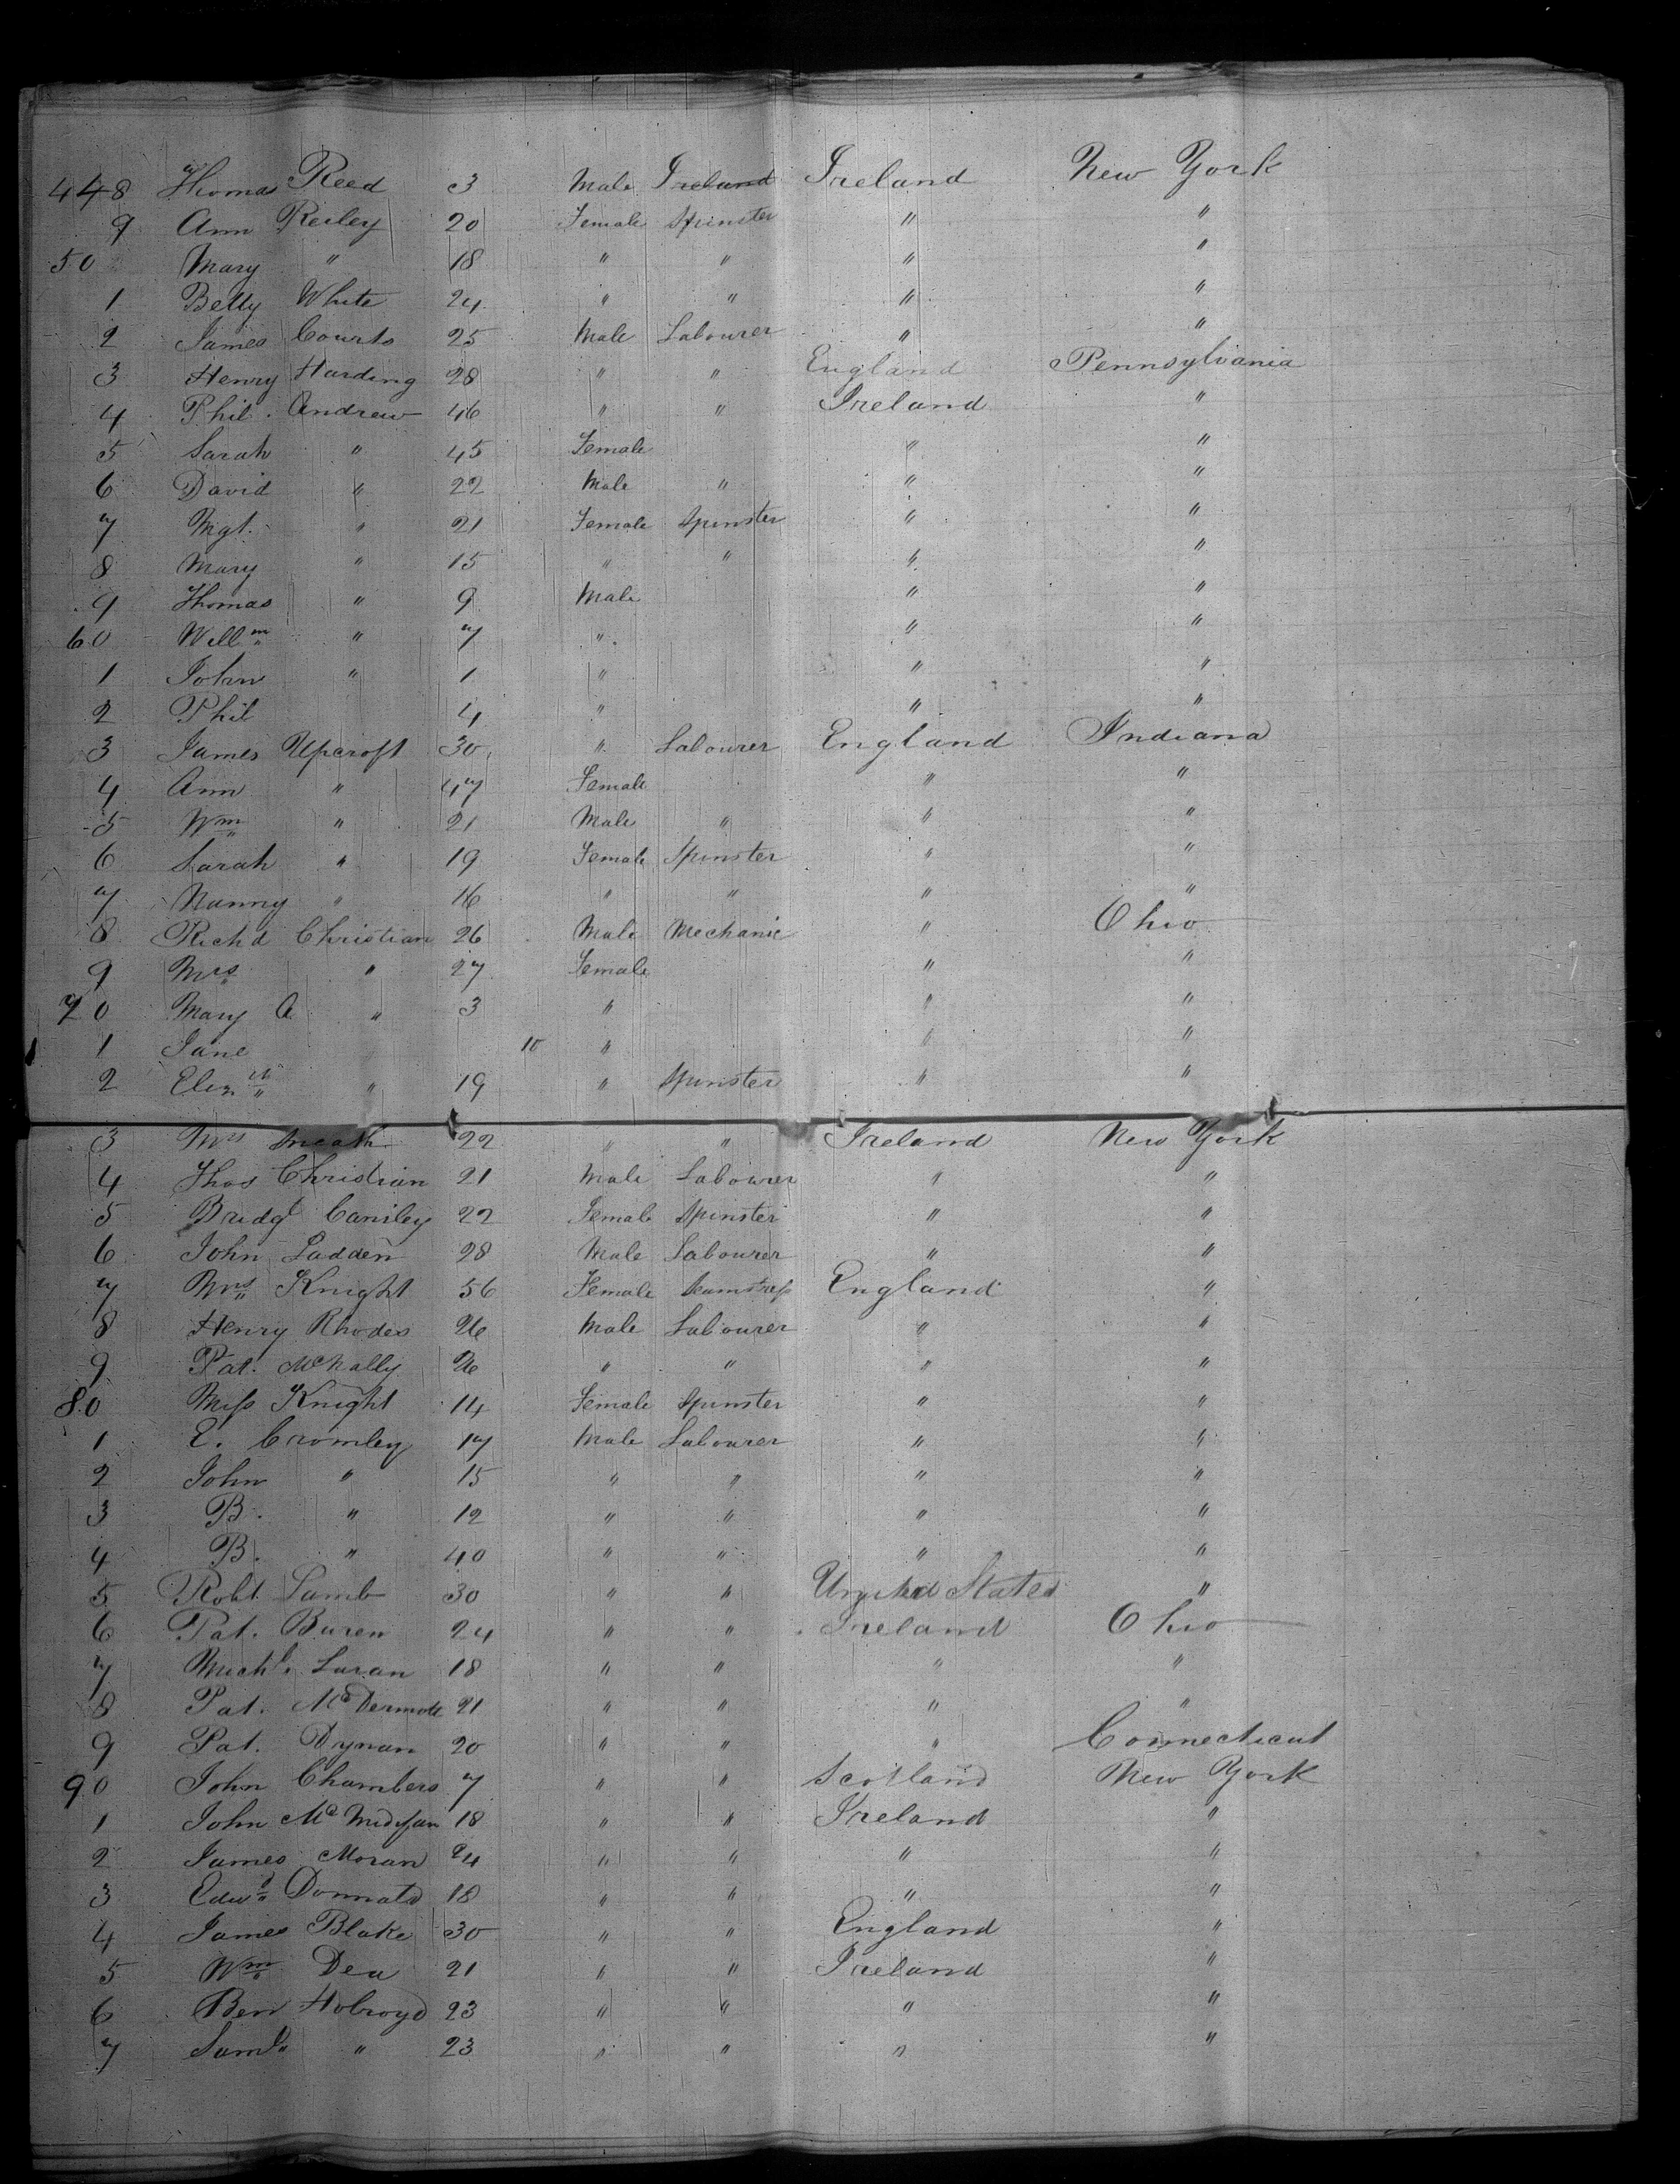 448 Thomas Reed 3 Male Ireland Ireland New York
9 Ann Reiley 20 Female Spinster " "
50 Mary " 18 " " " "
1 Betty White 24 " " " "
2 James Courts 25 Male Labourer " "
3 Henry Harding 28 " " England Pennsylvania
4 Phil. Andrew 46 " " Ireland "
5 Sarah " 45 Female " "
6 David " 22 Male " " "
7 Mgt. " 21 Female Spinster " "
8 Mary " 15 " " " "
9 Thomas " 9 Male " "
60 Willm " 7 " " "
1 John " 1 " " "
2 Phil 4 " " "
3 James Upcroft 30 " Labourer England Indiana
4 Ann " 47 Female " "
5 Wm " 21 Male " " "
6 Sarah " 19 Female Spinster " "
7 Nanny " 16 " " " "
8 Richd Christian 26 Male Mechanic " Ohio
9 Mrs " 27 Female " "
70 Mary A " 3 " " "
1 Jane 10 " " "
2 Elizth " 19 " Spinster " "
3 Mrs 22 " " Ireland New York
4 Thos Christian 21 Male Labourer " "
5 Bridgt Cansley 22 Female Spinster " "
6 John Ladden 28 Male Labourer " "
7 Mrs Knight 56 Female England "
8 Henry Rhodes 26 Male Labourer " "
9 Pat. McNally 26 " " " "
80 Miss Knight 14 Female Spinster " "
1 E. Cromley 17 Male Labourer " "
2 John " 15 " " " "
3 B. " 12 " " " "
4 B. " 40 " " " "
5 Robt Lamb 30 " " United States "
6 Pat. Buren 24 " " Ireland Ohio
7 Michl. Luran 18 " " " "
8 Pat. McDermott 21 " " " "
9 Pat. Dynan 20 " " " Connecticut
90 John Chambers 7 " " Scotland New York
1 John 18 " " Ireland "
2 James Moran 24 " " " "
3 Edwd 18 " " " "
4 James Blake 30 " " England "
5 Wm Dea 21 " " Ireland "
6 Ben Holroyd 23 " " " "
7 Saml " 23 " " " "